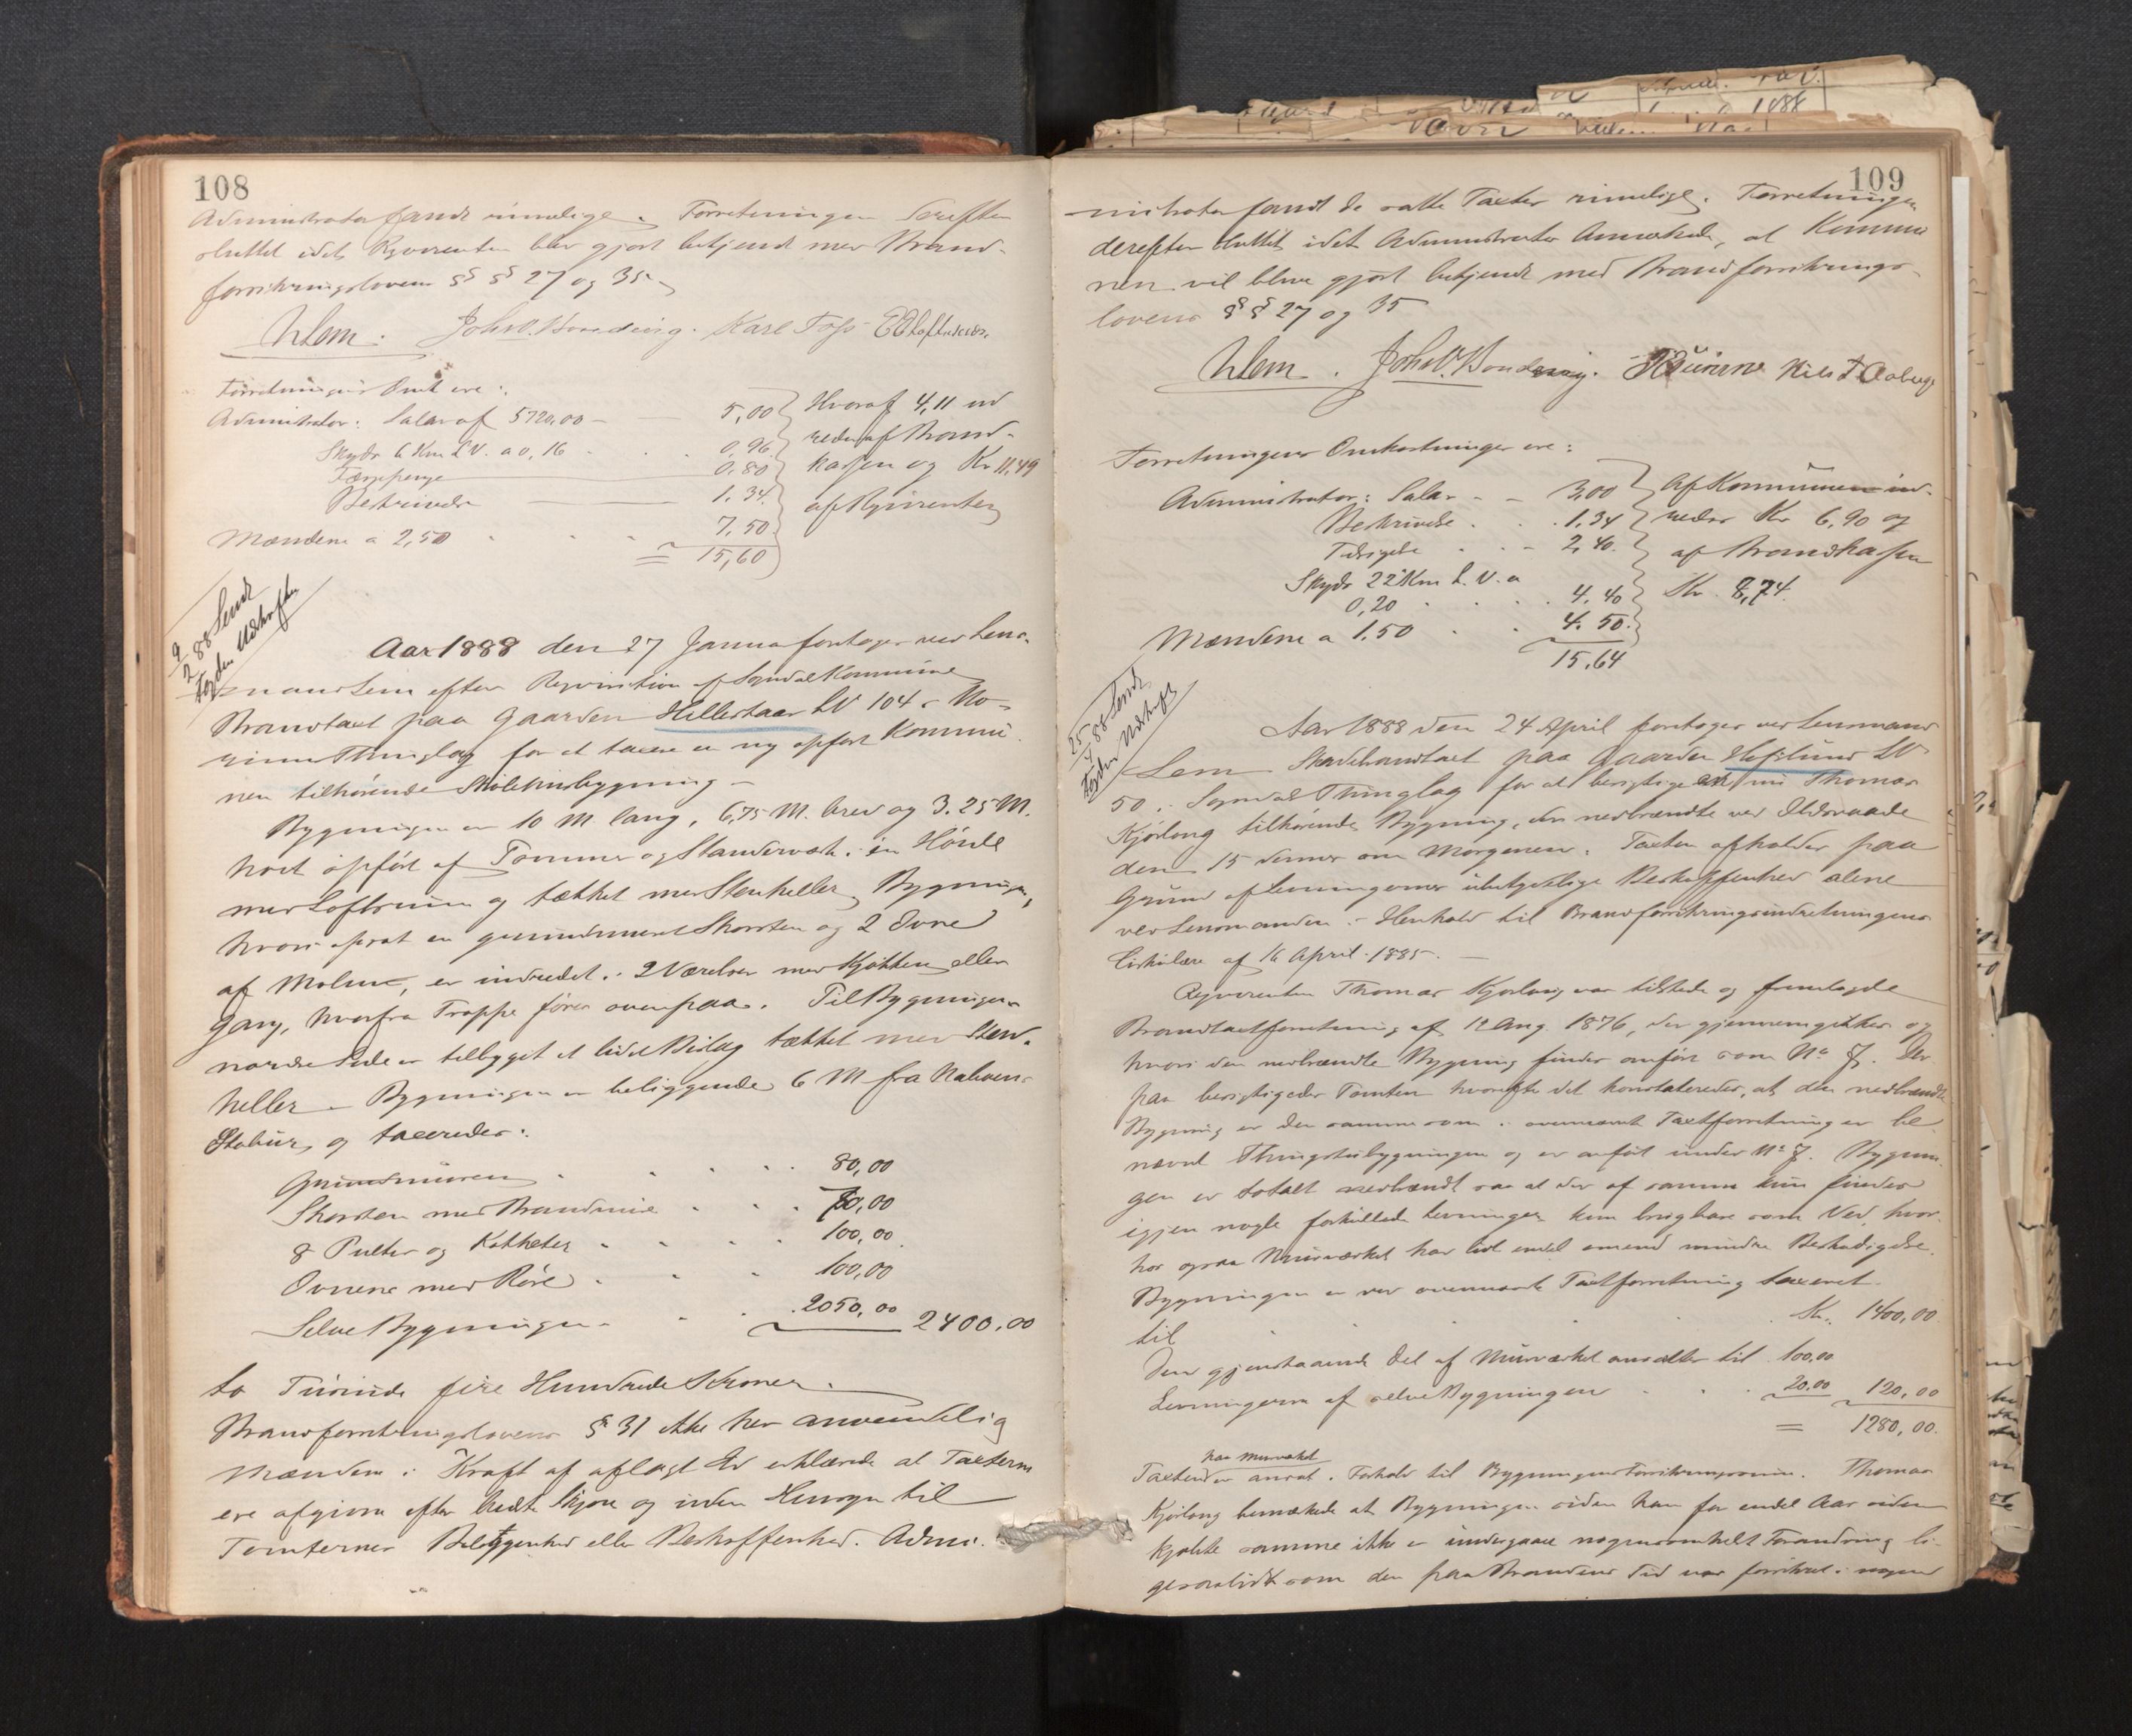 108
Administrator fandt rimelige. Forretningen derefter
sluttet idet Rqvirenten blev gjort bekjendt med Brand-
forsikringslovens §§ 27 og 35
Lem. Joh. Karl Foss
Forretningens Omk. ere:
Administrator: Salær af 5720,00 — 5,00
Skyds 6 Km L.V. a 0,16 . . . 0,96
Tærepenge 0,80
Beskrivelse 1,34
Mændene a 2,50 . . . 7,50
= 15,60
Hvoraf 4,11 ud
redes af Brand-
kassen og Kr 11,49
af Rqvirenten
9/2 88 Sendt
Fogden Udskriften
Aar 1888 den 27 Janua foretoges ved Lens-
mand Lem efter Reqvisition af Sogndal Kommune
Brandtaxt paa Gaarden Hillestaar LN 104 i No-
rums Thinglag for at taxere en ny opført Kommu
nen tilhørende Skolehusbygning —
Bygningen er 10 M. lang, 6,75 M. bred og 3.25 M.
høit opført af Tømmer og Standerværk i en Høide
med Loftsrum og tækket med Stenheller Bygningen,
hvori opsat en grundmuret Skorsten og 2 Ovne
af Malm, er indredet i 2 Værelser med Kjøkken eller
Gang, hvorfra Trappe fører ovenpaa. Til Bygningens
nordre Side er tilbygget et lidet Bislag tækket med Sten-
heller — Bygningen er beliggende 6 M fra
Stabur, og taxeredes:
Grundmuren . . . . 80,00
Skorsten med Brandmur . . . 70,00
8 Pulter og Katheder . . . . 100,00
Ovnene med Rør . . . 100,00
Selve Bygningen . . 2050,00 2400,00
to Tusinde fire Hundrede Kroner.
Brandforsikringslovens § 31 ikke her anvendelig
Mændene i Kraft af aflagt Ed erklærede at Taxterne
ere afgivne efter bedste Skjøn og uden Hensyn til
Tomternes Beliggenhed eller Beskaffenhed. Admi-
109
nistrator fandt de satte Taxter rimelige. Forretningen
derefter sluttet idet Administrator Anmærkede, at Kommu
nen vil blive gjort bekjendt med Brandforsikrings-
lovens §§ 27 og 35
Lem. Joh. Nils
Forretningens Omkostninger ere:
Administrator: Salær - - 3,00
Beskrivelse . . 1,34
2,40
Skyds 22 Km L.V. a
0,20 . . . . 4,40
Mændene a 1.50 . . 4.50
15,64
Af Kommunen ud-
redes Kr 6,90 og
af Brandkassen
Kr. 8,74.
25/4 88 Sendt
Fogden Udskrift
Aar 1888 den 24 April foretoges ved Lensmand
Lem Skadebrandtaxt paa Gaarden Hofslund LN
50 i Sogndal Thinglag for at besigtige en Thomas
Kjørlaug tilhørende Bygning, der nedbrændte ved Ildsvaade
den 15 dennes om Morgenen. Taxten afholdes paa
Grund af Levningernes ubetydelige Beskaffenhed alene
ved Lensmanden i Henhold til Brandforsikringsindretningens
Cirkulære af 16 April 1885. —
Rqvirenten Thomas Kjørlaug var tilstede og fremlagde
Brandtaxtforretning af 12 Aug. 1876, der gjennemgikkes og
hvori den nedbrændte Bygning findes anført som No 7. Der
paa besigtigedes Tomten hvorefter det konstateredes, at den nedbrændte
Bygning er den samme som i ovennævnt Taxtforretning er be
nævnt Thingstubygningen og er anført under No 7. Bygnin
gen er totalt nedbrændt saa at der af samme kun findes
igjen nogle forkullede Levninger kun brugbare som Ved, hvor
hos ogsaa Murværket har lidt endel omend mindre Beskadigelse.
Bygningen er ved ovennævnte Taxtforretning taxeret
til . . . . . Kr. 1400,00
Den gjenstaaende Del af Murværket ansættes til 100,00
Levningerne af selve Bygningen . . . 20,00 120,00
= 1280,00.
paa Murværket
Taxten er ansat i Forhold til Bygningens Forsikringssum. Thomas
Kjørlaug bemærkede at Bygningen siden han for endel Aar siden
kjøbte samme ikke er undergaaet nogensomhelst Forandring li-
gesaalidt som den paa Brandens Tid var forsikret i nogen